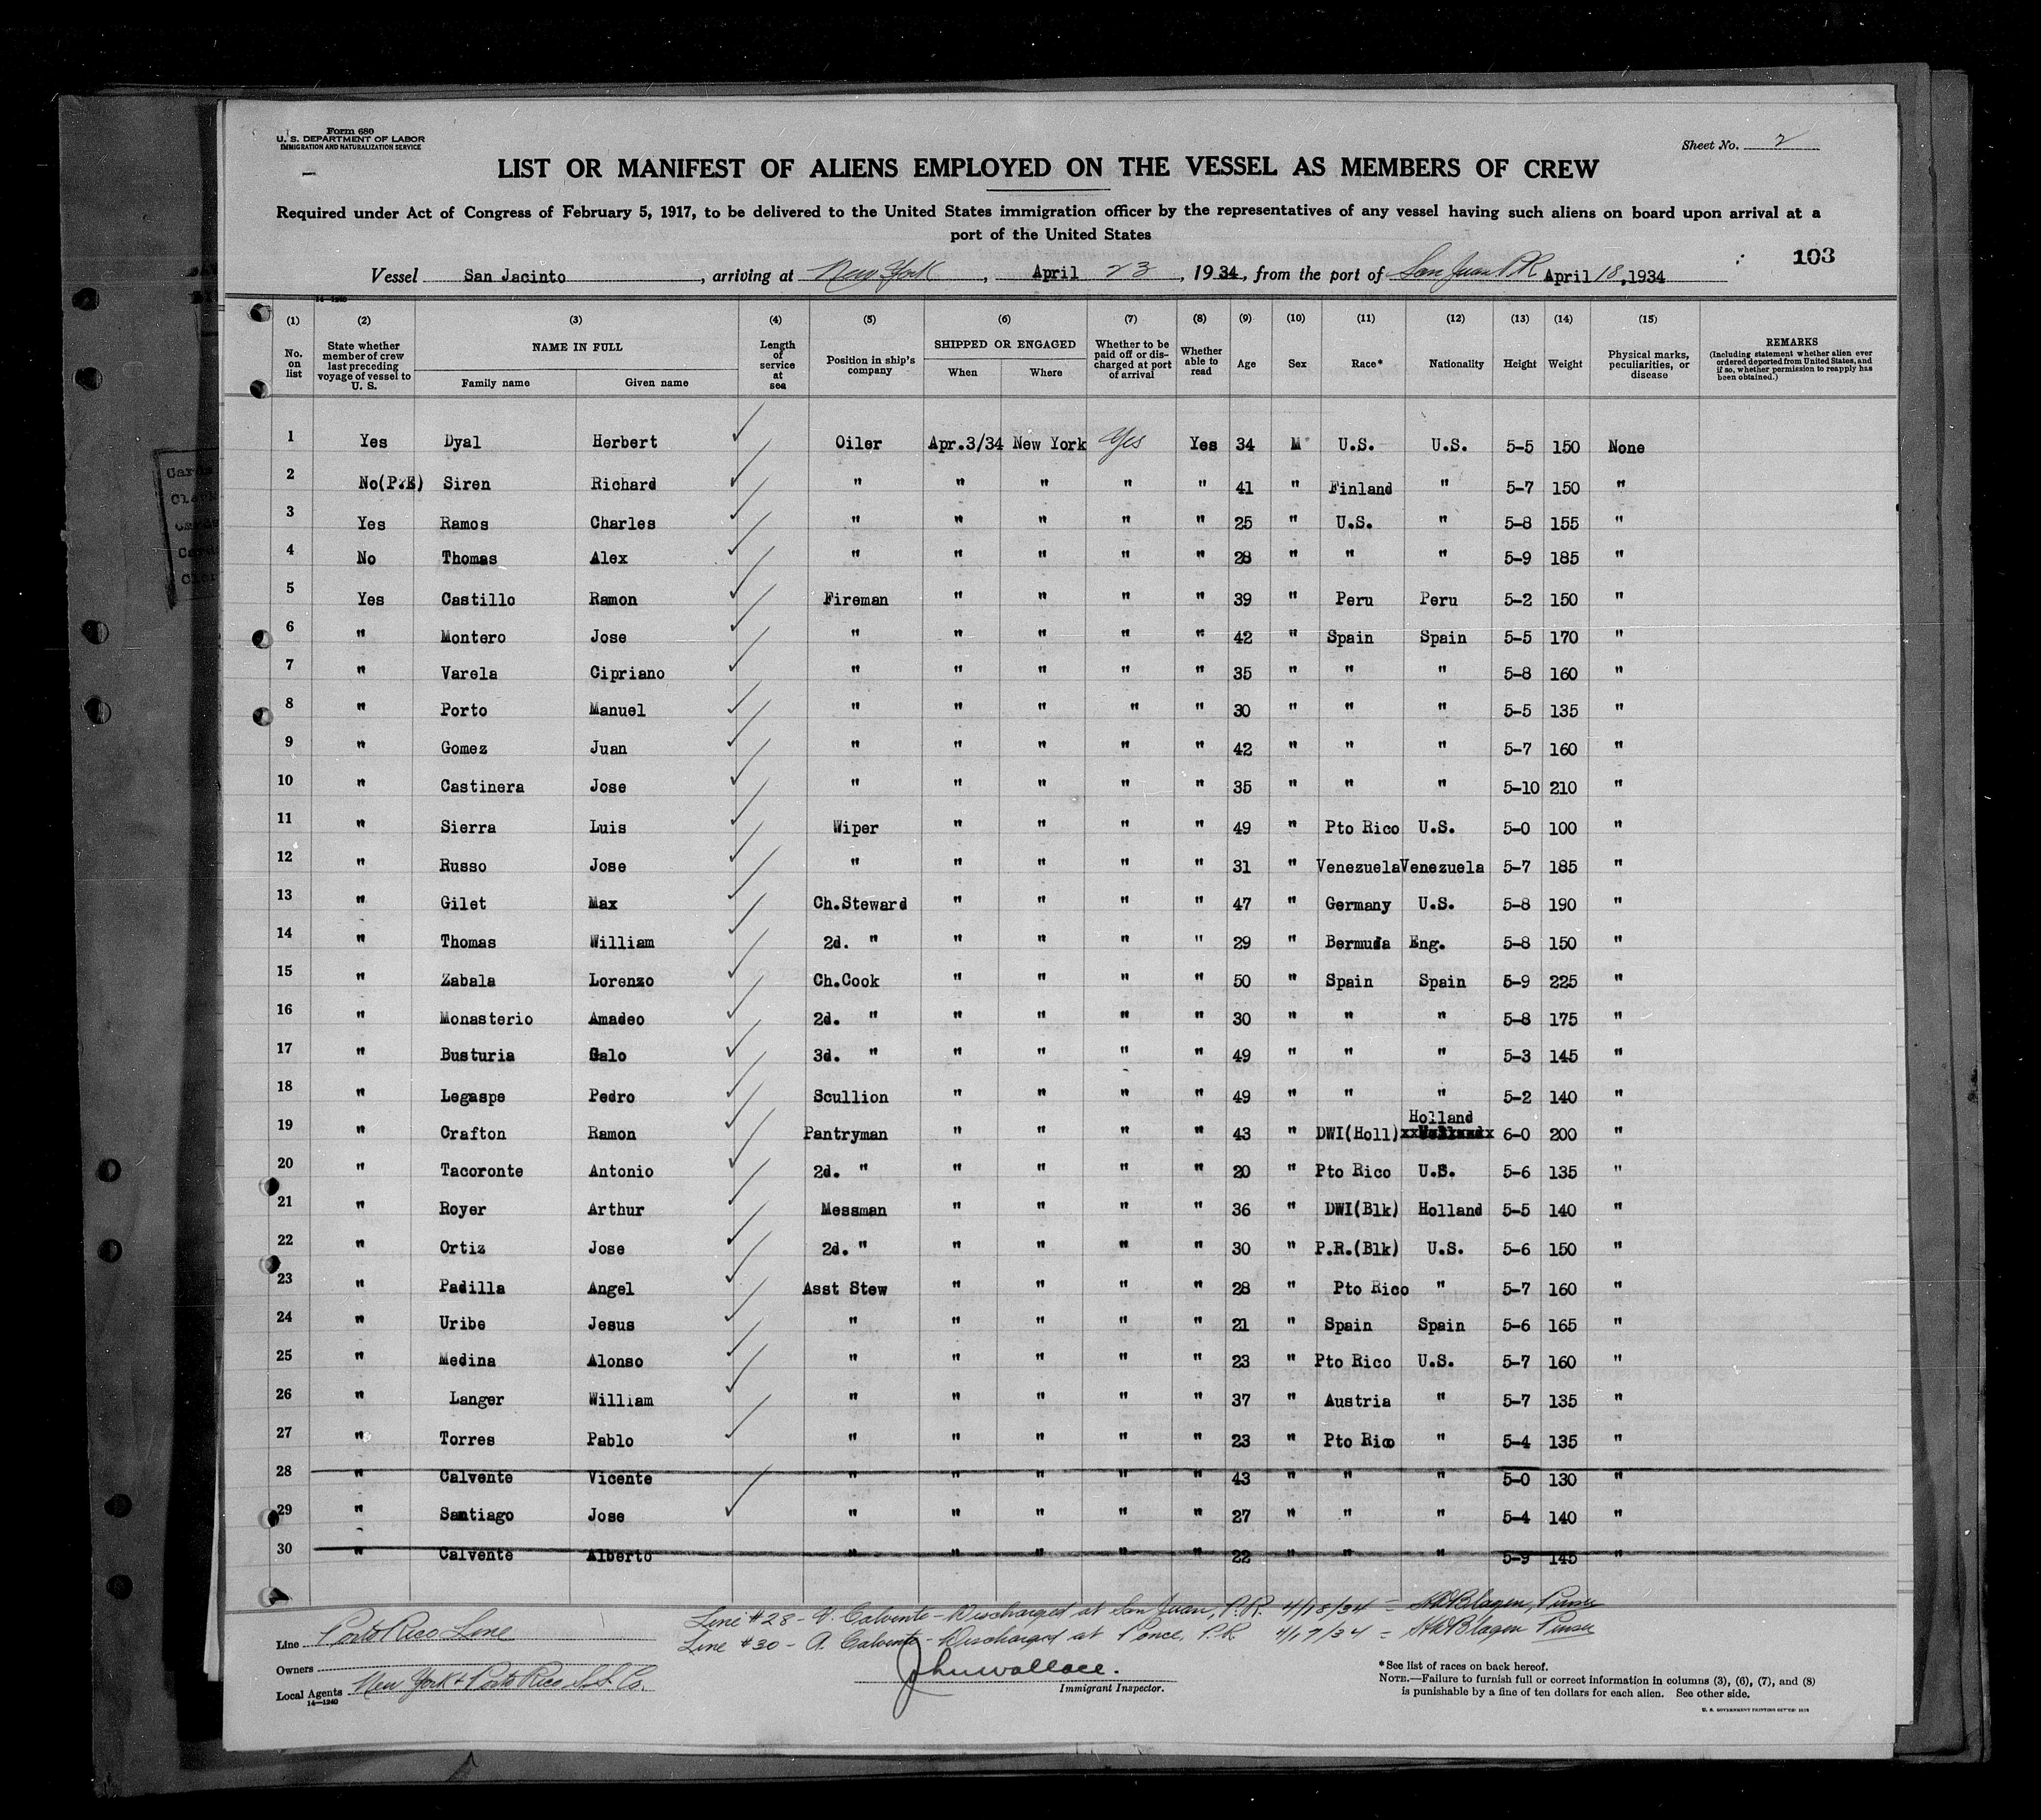 Form 680
U. S. DEPARTMENT OF LABOR
IMMIGRATION AND NATURALIZATION SERVICE
Sheet No. 2
LIST OR MANIFEST OF ALIENS EMPLOYED ON THE VESSEL AS MEMBERS OF CREW
Required under Act of Congress of February 5, 1917, to be delivered to the United States immigration officer by the representatives of any vessel having such aliens on board upon arrival at a
port of the United States
103
Vessel San Jacinto, arriving at New York, April 23, 1934, from the port of San Juan P.R. April 18, 1934
14—1240
(1) (2) (3) (4) (5) (6) (7) (8) (9) (10) (11) (12) (13) (14) (15)
No. on list State whether member of crew last preceding voyage of vessel to U. S. NAME IN FULL Family name Given name Length of service at sea Position in ship's company SHIPPED OR ENGAGED When Where Whether to be paid off or discharged at port of arrival Whether able to read Age Sex Race* Nationality Height Weight Physical marks, peculiarities, or disease REMARKS (Including statement whether alien ever ordered deported from United States, and if so, whether permission to reapply has been obtained.)
1 Yes Dyal Herbert ✓ Oiler Apr.3/34 New York Yes Yes 34 M U.S. U.S. 5-5 150 None
2 No(P.E) Siren Richard ✓ " " " " " 41 " Finland " 5-7 150 "
3 Yes Ramos Charles ✓ " " " " " 25 " U.S. " 5-8 155 "
4 No Thomas Alex ✓ " " " " " 28 " " " 5-9 185 "
5 Yes Castillo Ramon ✓ Fireman " " " " 39 " Peru Peru 5-2 150 "
6 " Montero Jose ✓ " " " " " 42 " Spain Spain 5-5 170 "
7 " Varela Cipriano ✓ " " " " " 35 " " " 5-8 160 "
8 " Porto Manuel ✓ " " " " " 30 " " " 5-5 135 "
9 " Gomez Juan ✓ " " " " " 42 " " " 5-7 160 "
10 " Castinera Jose ✓ " " " " " 35 " " " 5-10 210 "
11 " Sierra Luis ✓ Wiper " " " " 49 " Pto Rico U.S. 5-0 100 "
12 " Russo Jose ✓ " " " " " 31 " Venezuela Venezuela 5-7 185 "
13 " Gilet Max ✓ Ch.Steward " " " " 47 " Germany U.S. 5-8 190 "
14 " Thomas William ✓ 2d. " " " " " 29 " Bermuda Eng. 5-8 150 "
15 " Zabala Lorenzo ✓ Ch.Cook " " " " 50 " Spain Spain 5-9 225 "
16 " Monasterio Amadeo ✓ 2d. " " " " " 30 " " " 5-8 175 "
17 " Busturia Galo ✓ 3d. " " " " " 49 " " " 5-3 145 "
18 " Legaspe Pedro ✓ Scullion " " " " 49 " " " 5-2 140 "
19 " Crafton Ramon ✓ Pantryman " " " " 43 " DWI(Holl) Holland 6-0 200 "
20 " Tacoronte Antonio ✓ 2d. " " " " " 20 " Pto Rico U.S. 5-6 135 "
21 " Royer Arthur ✓ Messman " " " " 36 " DWI(Blk) Holland 5-5 140 "
22 " Ortiz Jose ✓ 2d. " " " " " 30 " P.R.(Blk) U.S. 5-6 150 "
23 " Padilla Angel ✓ Asst Stew " " " " 28 " Pto Rico " 5-7 160 "
24 " Uribe Jesus ✓ " " " " " 21 " Spain Spain 5-6 165 "
25 " Medina Alonso ✓ " " " " " 23 " Pto Rico U.S. 5-7 160 "
26 " Langer William ✓ " " " " " 37 " Austria " 5-7 135 "
27 " Torres Pablo ✓ " " " " " 23 " Pto Rico " 5-4 135 "
28 " Calvente Vicente " " " " " 43 " " " 5-0 130 "
29 " Santiago Jose ✓ " " " " " 27 " " " 5-4 140 "
30 " Calvente Alberto " " " " " 22 " " " 5-9 145 "
Line #28 - V. Calvente - Discharged at San Juan, P.R. 4/18/34 = Purser
Line #30 - A. Calvente - Discharged at Ponce, P.R 4/17/34 = Purser
Line Porto Rico Line
Owners
Local Agents New York & Porto Rico S.S. Co.
14—1240
John Wallace.
Immigrant Inspector.
*See list of races on back hereof.
NOTE.—Failure to furnish full or correct information in columns (3), (6), (7), and (8)
is punishable by a fine of ten dollars for each alien. See other side.